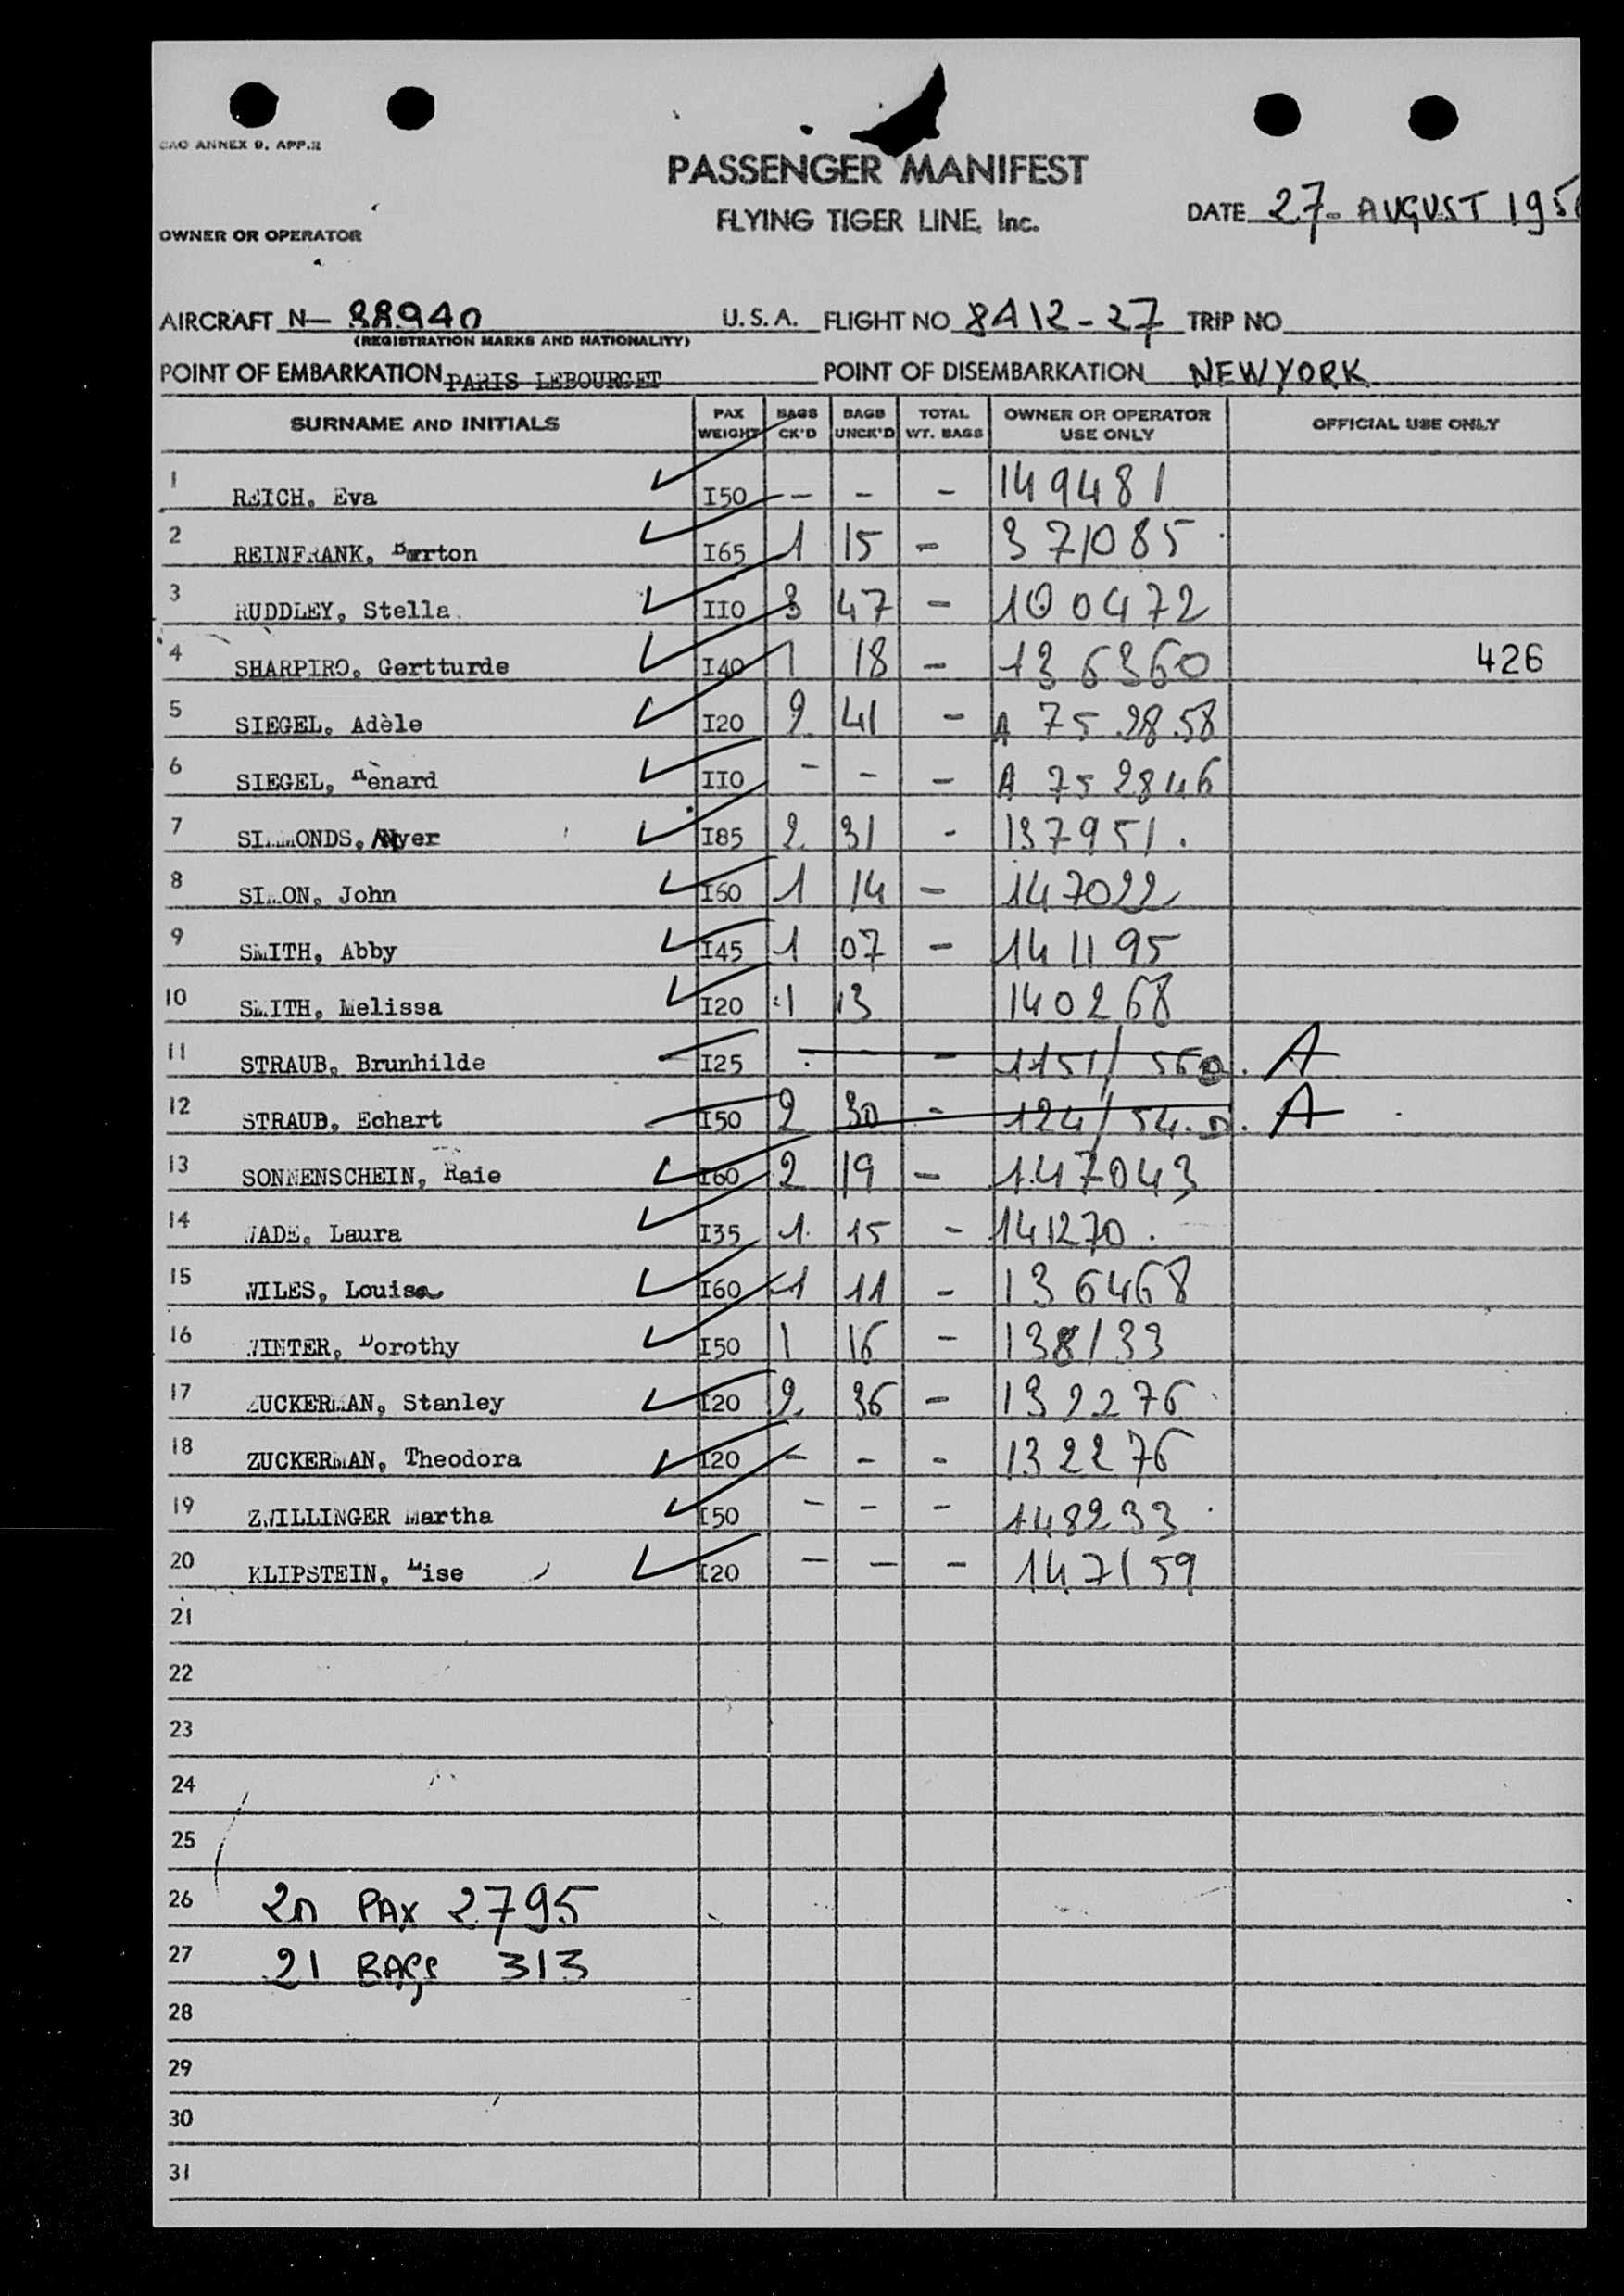 CAO ANNEX 9, APP.2
PASSENGER MANIFEST
FLYING TIGER LINE, Inc.
DATE 27- AUGUST 195
OWNER OR OPERATOR
AIRCRAFT N— 88940 U.S.A. FLIGHT NO 8A12-27 TRIP NO
(REGISTRATION MARKS AND NATIONALITY)
POINT OF EMBARKATION PARIS LEBOURGET POINT OF DISEMBARKATION NEWYORK
SURNAME AND INITIALS PAX WEIGHT BAGS CK'D BAGS UNCK'D TOTAL WT. BAGS OWNER OR OPERATOR USE ONLY OFFICIAL USE ONLY
1 REICH, Eva I50 — — — 149481
2 REINFRANK, Burton I65 1 15 — 371085
3 RUDDLEY, Stella I10 3 47 — 100472
4 SHARPIRO, Gertturde I40 1 18 — 136360 426
5 SIEGEL, Adèle I20 2 41 — A 752858
6 SIEGEL, I10 — — — A 7528446
7 SIMMONDS, Myer I85 2 31 - 137951.
8 SIMON, John I60 1 14 — 147022
9 SMITH, Abby I45 1 07 — 141195
10 SMITH, Melissa I20 1 13 140268
11 STRAUB, Brunhilde I25 — 1151/56D. A
12 STRAUB, Echart I50 2 30 - 124/54.D. A
13 SONNENSCHEIN, Raie I60 2 19 — 147043
14 WADE, Laura I35 1 15 - 141270.
15 WILES, Louisa I60 1 11 - 136468
16 WINTER, Dorothy I50 1 16 — 138133
17 ZUCKERMAN, Stanley I20 2 36 — 132276
18 ZUCKERMAN, Theodora I20 — — - 132276
19 ZWILLINGER Martha I50 — — — 148233
20 KLIPSTEIN, Lise I20 — — — 147159
21
22
23
24
25
26 20 PAX 2795
27 21 BAGS 313
28
29
30
31